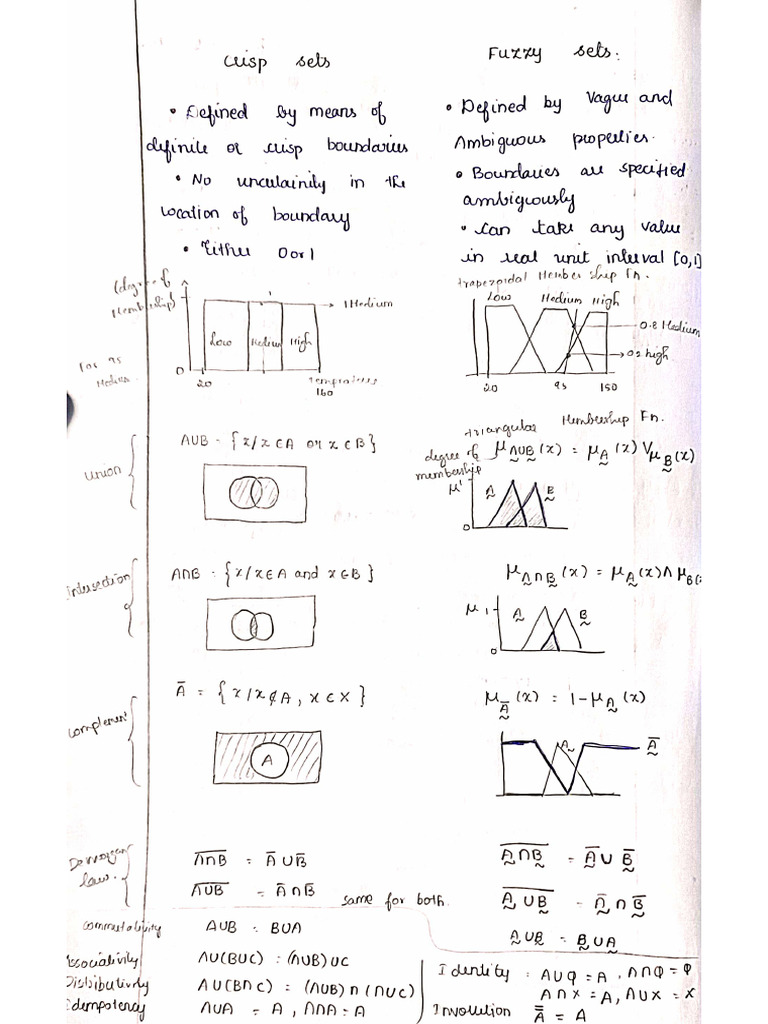 Crisp sets
Fuzzy sets.
• Defined by means of
definite or crisp boundaries
• No uncertainity in the
location of boundary
• Either 0 or 1
• Defined by Vague and
Ambiguous properties.
• Boundaries are specified
ambiguously
• Can take any value
in real unit interval [0,1]
(degree of
Membership)
1
0
Low
Medium
High
1 Medium
20
Temperatures
160
For 95
Medium
trapezoidal Member ship Fn.
Low
Medium
High
0.8 Medium
0.2 high
20
95
150
Union
A∪B = {x/x∈A or x∈B}
triangular Membership Fn.
degree of
membership
μ_A̰∪B̰(x) = μ_A̰(x) V μ_B̰(x)
μ1
0
A̰
B̰
intersection
A∩B = {x/x∈A and x∈B}
μ_A̰∩B̰(x) = μ_A̰(x) Λ μ_B(
μ 1
0
A̰
B̰
complement
Ā = {x/x∉A, x∈X}
A
μ_Ā̰(x) = 1-μ_A̰(x)
A̰
Ā̰
De morgan
law.
\overline{A∩B} = Ā∪B̄
\overline{A∪B} = Ā∩B̄
same for both.
\overline{A̰∩B̰} = Ā̰ ∪ B̰̄
\overline{A̰∪B̰} = Ā̰ ∩ B̰̄
commutativity A∪B = B∪A
A̰∪B̰ = B̰∪A̰
Associativity A∪(B∪C) = (A∪B)∪C
Distributively A∪(B∩C) = (A∪B)∩(A∪C)
Idempotency A∪A = A, A∩A = A
Identity : A∪φ = A, A∩φ = φ
A∩X = A, A∪X = X
Involution A̿ = A